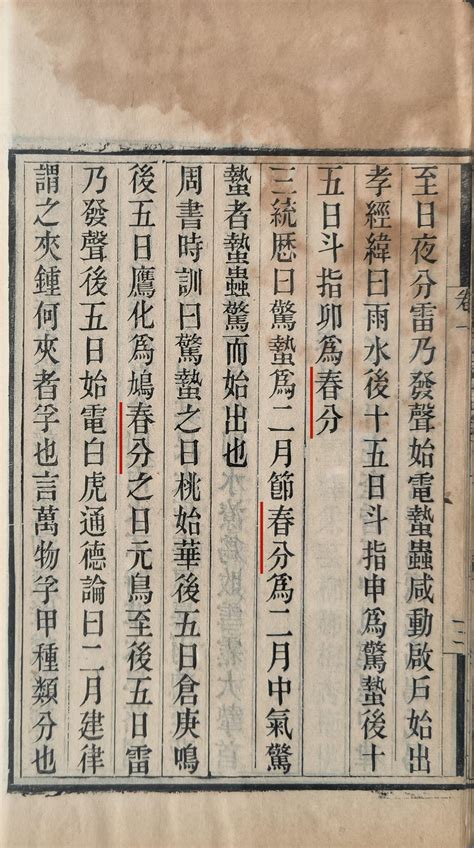 至日夜分雷乃發聲始電蟄蟲咸動啟戶始出
孝經緯曰雨水後十五日斗指甲爲驚蟄後十
五日斗指卯爲春分
三統歴曰驚蟄爲二月節春分爲二月中氣驚
蟄者蟄蟲驚而始出也
周書時訓曰驚蟄之日桃始華後五日倉庚鳴
後五日鷹化爲鳩春分之日元鳥至後五日雷
乃發聲後五日始電白虎通德論曰二月建律
謂之夾鍾何夾者孚也言萬物孚甲種類分也
卷一